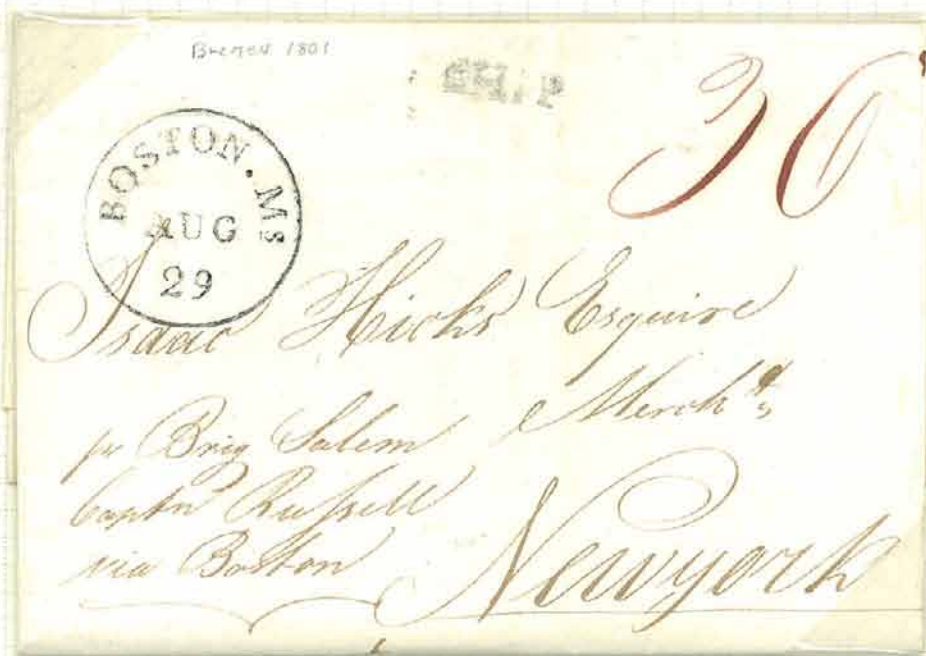 Bremen 1801
SHIP
36
BOSTON. Ms
AUG
29
Isaac Hicks Esquire
Merch.t
pr Brig Salem
Captn Russell
via Boston
Newyork